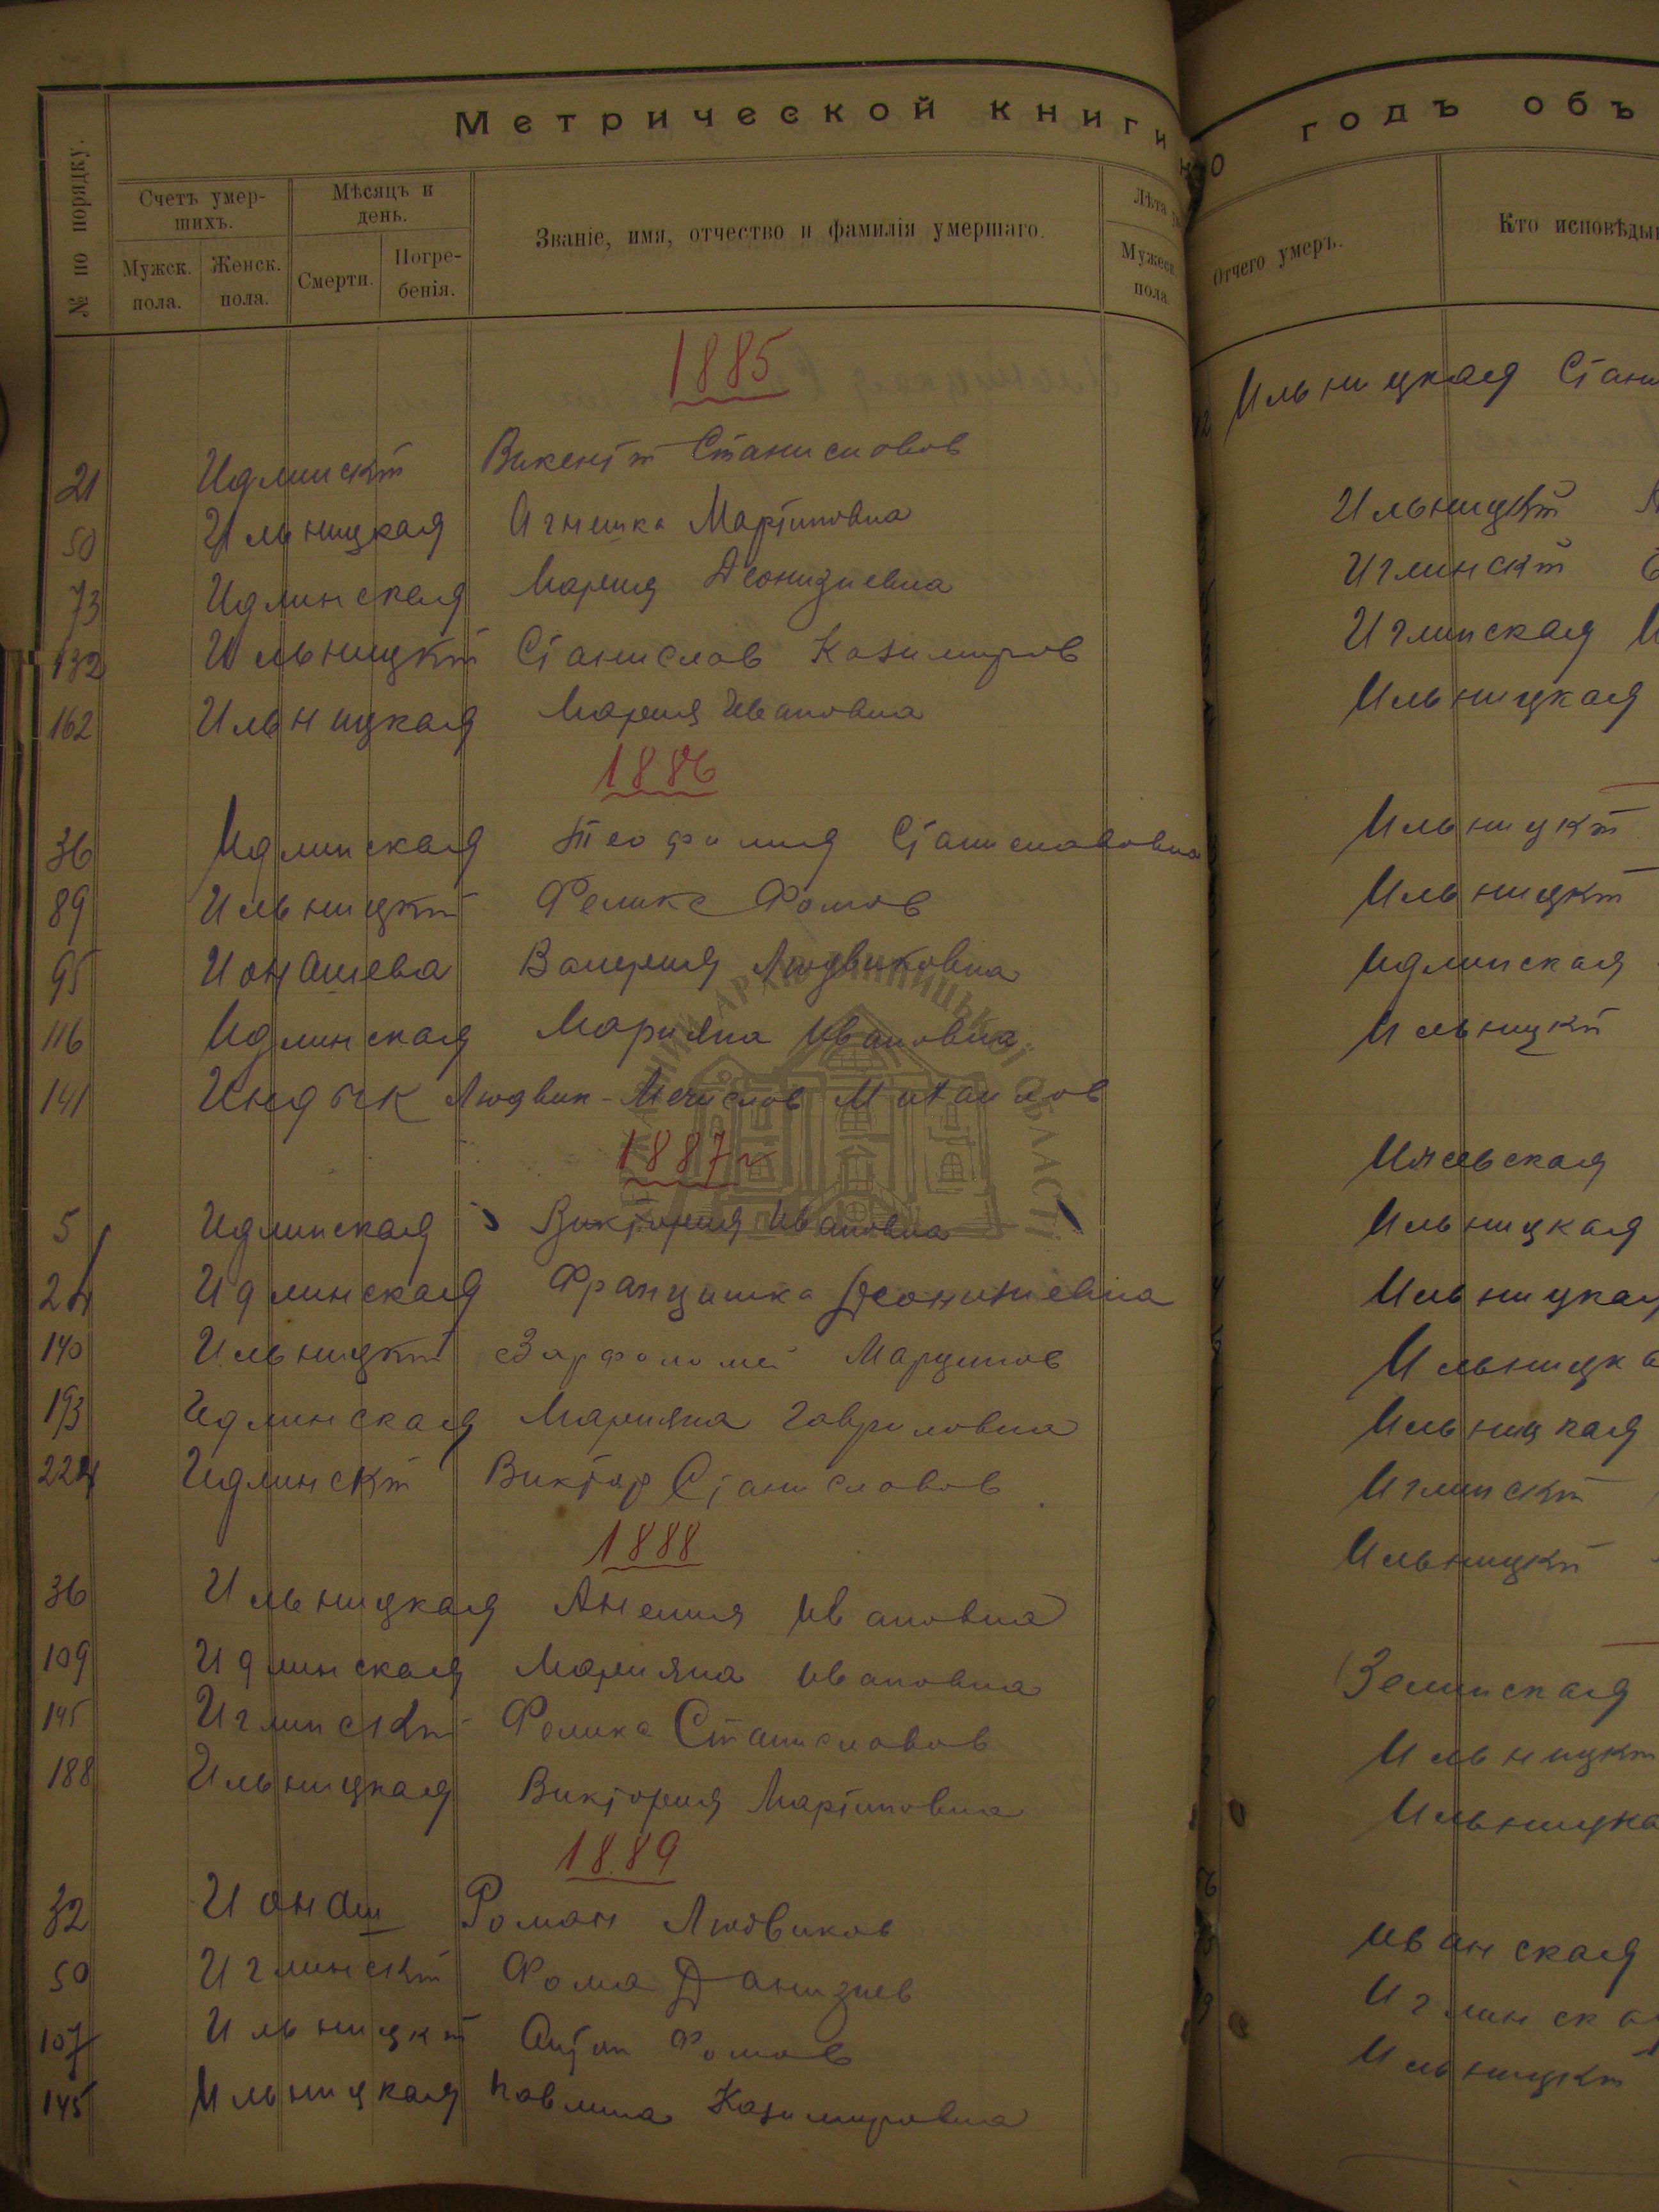 Метрической книги
на
№ по порядку.
Счетъ умер-
шихъ.
Мужск.
пола.
Женск.
пола.
Мѣсяцъ и
день.
Смерти.
Погре-
бенія.
Званіе, имя, отчество и фамилія умершаго.
Лѣта
Мужеск.
пола.
1885
21 Идлинскій Викентій Станиславов
50 Ильницкая Агнешка Мартиновна
73 Идлинская Мария Деонизиевна
132 Ильницкій Станислав Казимиров
162 Ильницкая Мария Ивановна
1886
36 Идлинская Теофилия Станиславовна
89 Ильницкій Феликс Фомов
95 Ионашева Валерия Людвиковна
116 Идлинская Марияна Ивановна
141 Индык Людвик-Мечислав Михайлов
1887 г
5 Идлинская Виктория Ивановна
24 Идлинская Францишка Деонизиевна
140 Ильницкій Варфоломей Марцинов
193 Идлинская Марияна Гавриловна
224 Идлинскій Виктор Станиславов
1888
36 Ильницкая Анеля Ивановна
109 Идлинская Марияна Ивановна
145 Иглинскій Феликс Станиславов
188 Ильницкая Виктория Мартиновна
1889
32 Ионаш Роман Людвиков
50 Иглинскій Фома Данизиев
107 Ильницкій Антон Фомов
145 Ильницкая Павлина Казимировна
годъ объ
Отчего умеръ.
Кто исповѣды
Ильницкая Стани
Ильницкій
Иглинскій
Иглинская
Ильницкая
Ильницкій
Ильницкій
Идлинская
Ильницкій
Ильницкая
Ильницкая
Ильницка
Ильницкая
Иглинскій
Ильницкій
Зелинская
Ильницкій
Ильницка
Иванская
Иглинска
Ильницкій
АРХІВ ВІННИЦЬКОЇ ОБЛАСТІ